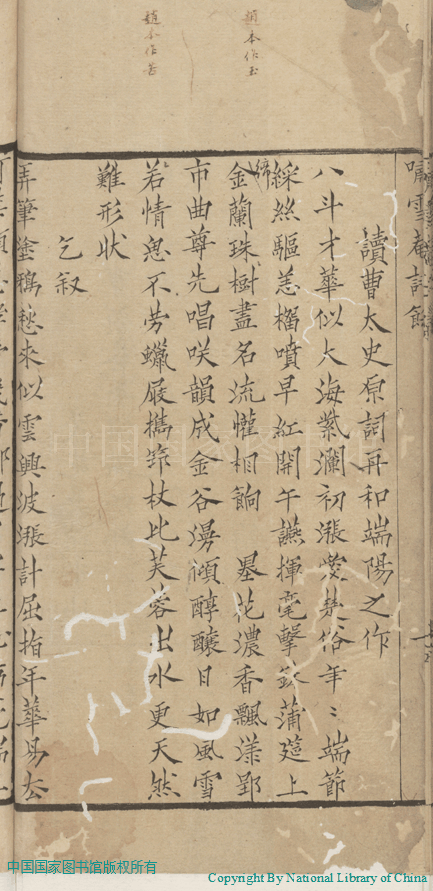 趙本作玉
趙本作苦
嘯雪菴詩餘
讀曹太史原詞再和端陽之作
八斗才華似大海縈瀾初漲愛楚俗年〻端節
綵絲驅恙榴噴早紅開午讌揮毫擊鉢蒲筵上
締
金蘭珠樹盡名流懽相餉　墨花濃香飄漾郢
市曲尊先唱咲韻成金谷漫傾醇釀日如風雪
若情　不勞蠟屐攜筇杖比芙蓉出水更天然
難形狀
乞叙
弄筆塗鴉愁來似雲興波漲計屈指年華易去
中国国家图书馆版权所有
Copyright By National Library of China